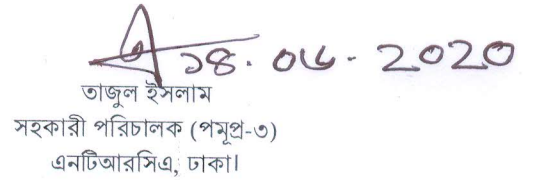 ১৪. ০৬ - ২০২০
তাজুল ইসলাম
সহকারী পরিচালক (পমূপ্র-৩)
এনটিআরসিএ, ঢাকা।